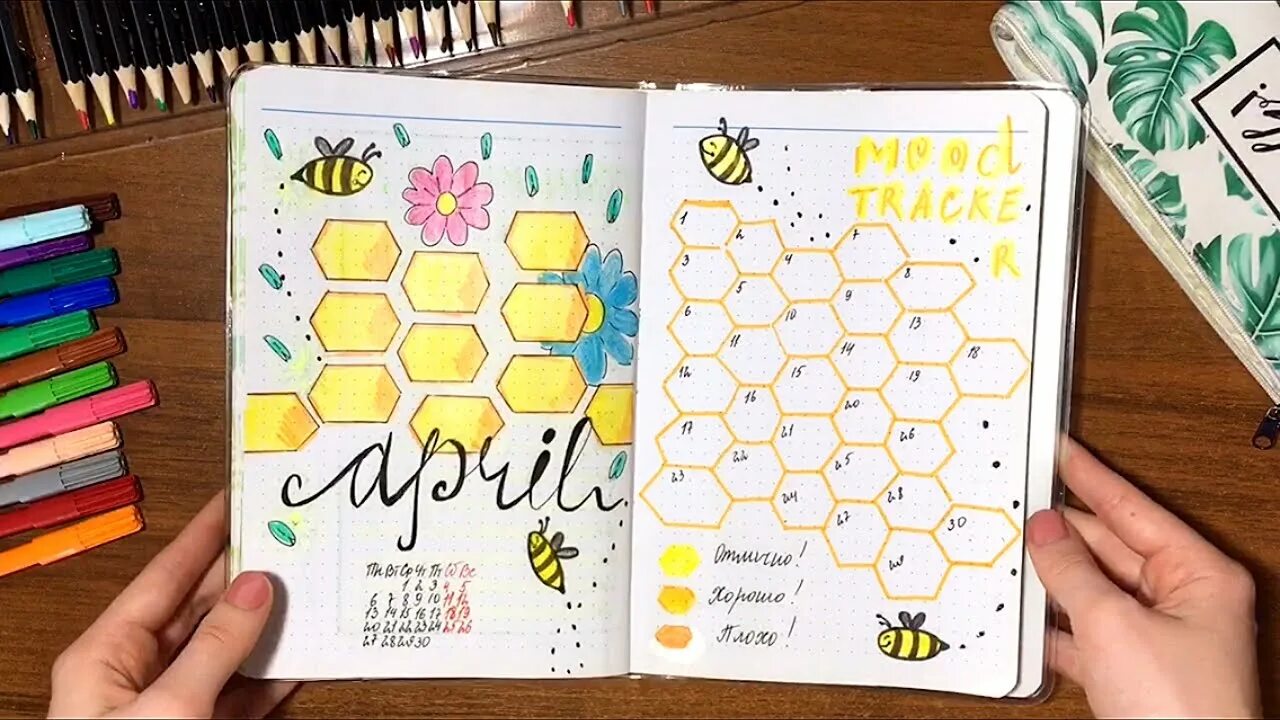 april
Пн Вт Ср Чт Пт Сб Вс
1 2 3 4 5
6 7 8 9 10 11 12
13 14 15 16 17 18 19
20 21 22 23 24 25 26
27 28 29 30
MOOd
TRACKE
R
1
2
3
4
5
6
7
8
9
10
11
12
13
14
15
16
17
18
19
20
21
22
23
24
25
26
27
28
29
30
Отлично!
Хорошо!
Плохо!